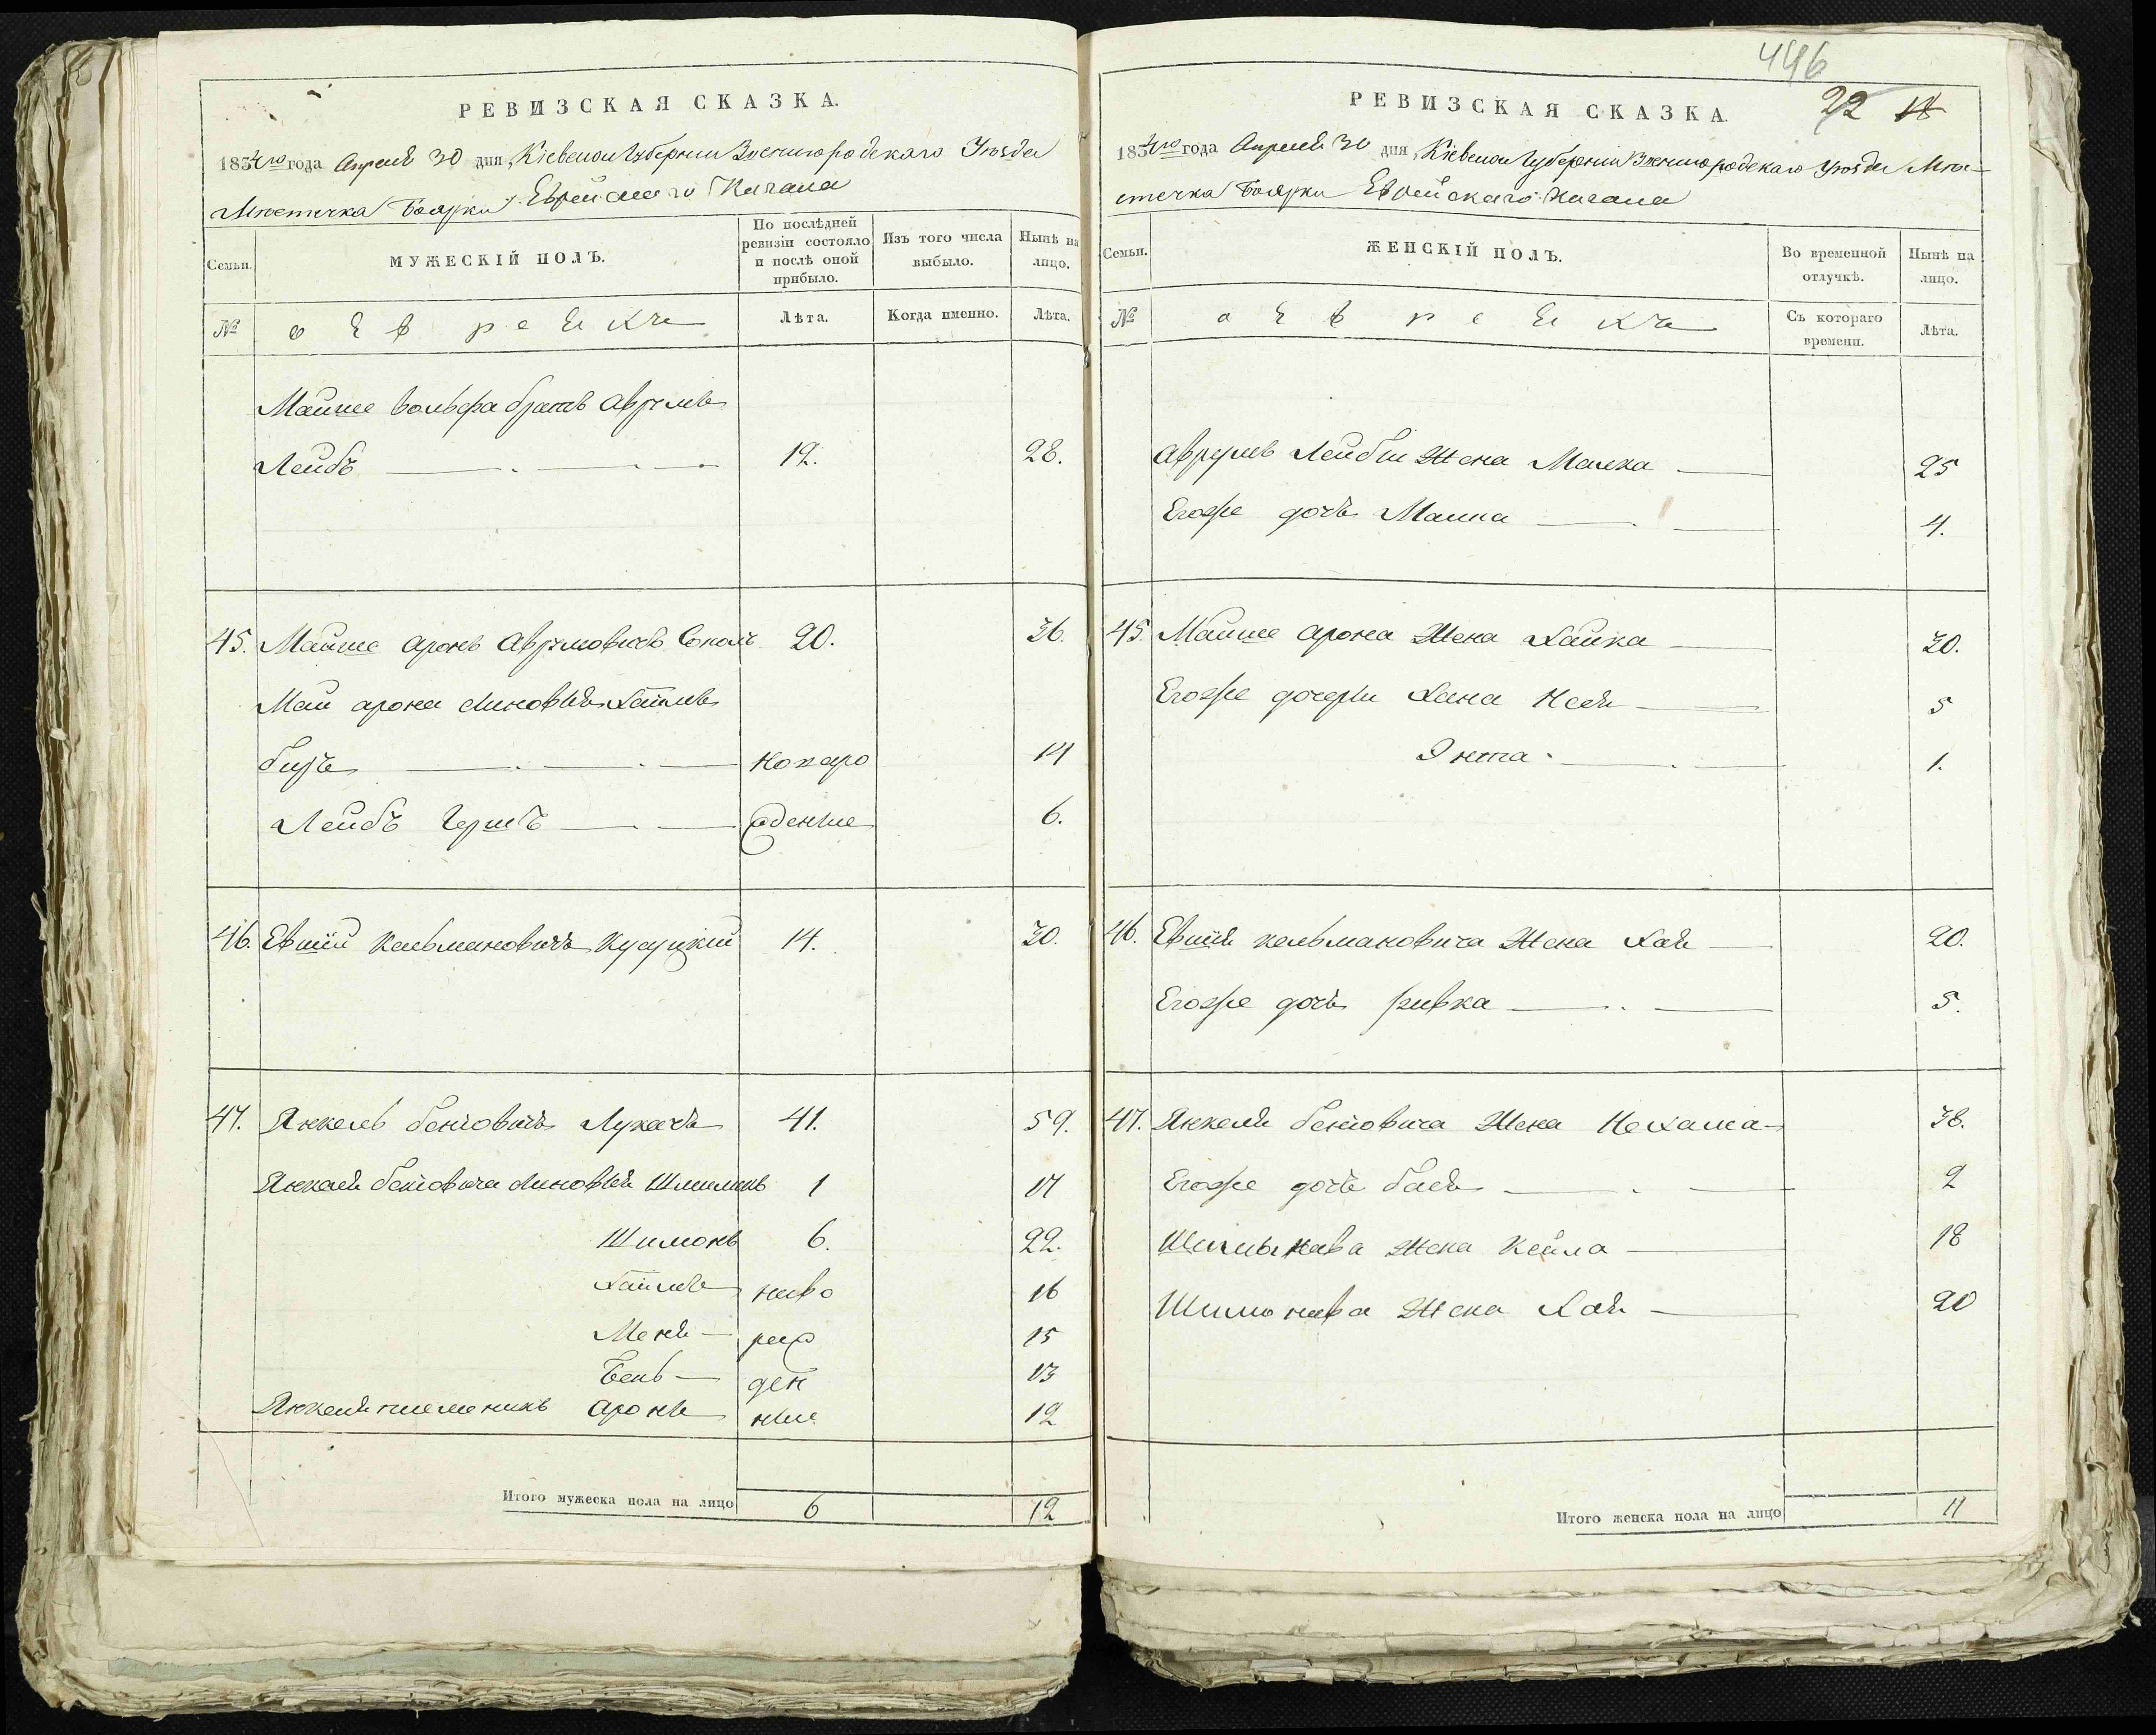 РЕВИЗСКАЯ СКАЗКА.
1834го года Апреля 30 дня, Кіевской Губерніи Звенигородскаго Уѣзда
Мѣстечка Боярки Еврейскаго Кагала
Семьи.
МУЖЕСКІЙ ПОЛЪ.
По послѣдней ревизіи состояло и послѣ оной прибыло.
Изъ того числа выбыло.
Нынѣ на лицо.
№
о Евреяхъ
Лѣта.
Когда именно.
Лѣта.
Мошше Вольфа братъ Аврумъ
Лейбъ 12. 28.
45. Мошше Аронъ Аврумовичъ Соколъ 20. 36.
Мош Арона сыновья Хаимъ
новоро 14
Лейбъ Гершъ жденные 6.
46. Евшій Кальмановичъ 14. 30.
47. Янкель Бенiовичъ Лукачъ 41. 59.
Янкеля Бенiовича сыновья 1 17
Шимонъ 6. 22.
Хаимъ ново 16
Меня рож 15
Бень ден 13
Янкеля племяникъ Аронъ ные 12
Итого мужеска пола на лицо 6 12
446
22
РЕВИЗСКАЯ СКАЗКА.
1834го года Апреля 30 дня, Кіевской Губерніи Звенигородскаго Уѣзда Мѣ-
стечка Боярки Еврейскаго Кагала
Семьи.
ЖЕНСКІЙ ПОЛЪ.
Во временной отлучкѣ.
Нынѣ на лицо.
№
о Евреяхъ
Съ котораго времени.
Лѣта.
Аврумъ Лейбы Жена Малка 25
Егоже дочь Маина 4.
45. Мошше Арона Жена Хайка 30.
Егоже дочери Хана Неся 5
Энта 1.
46. Евшія Кальмановича Жена Хая 20.
Егоже дочь Ривка 5.
47. Янкеля Бенiовича Жена Нехама 38.
Егоже дочь Бася 2
Жена Кейла 18
Шимонава Жена Хая 20
Итого женска пола на лицо 11